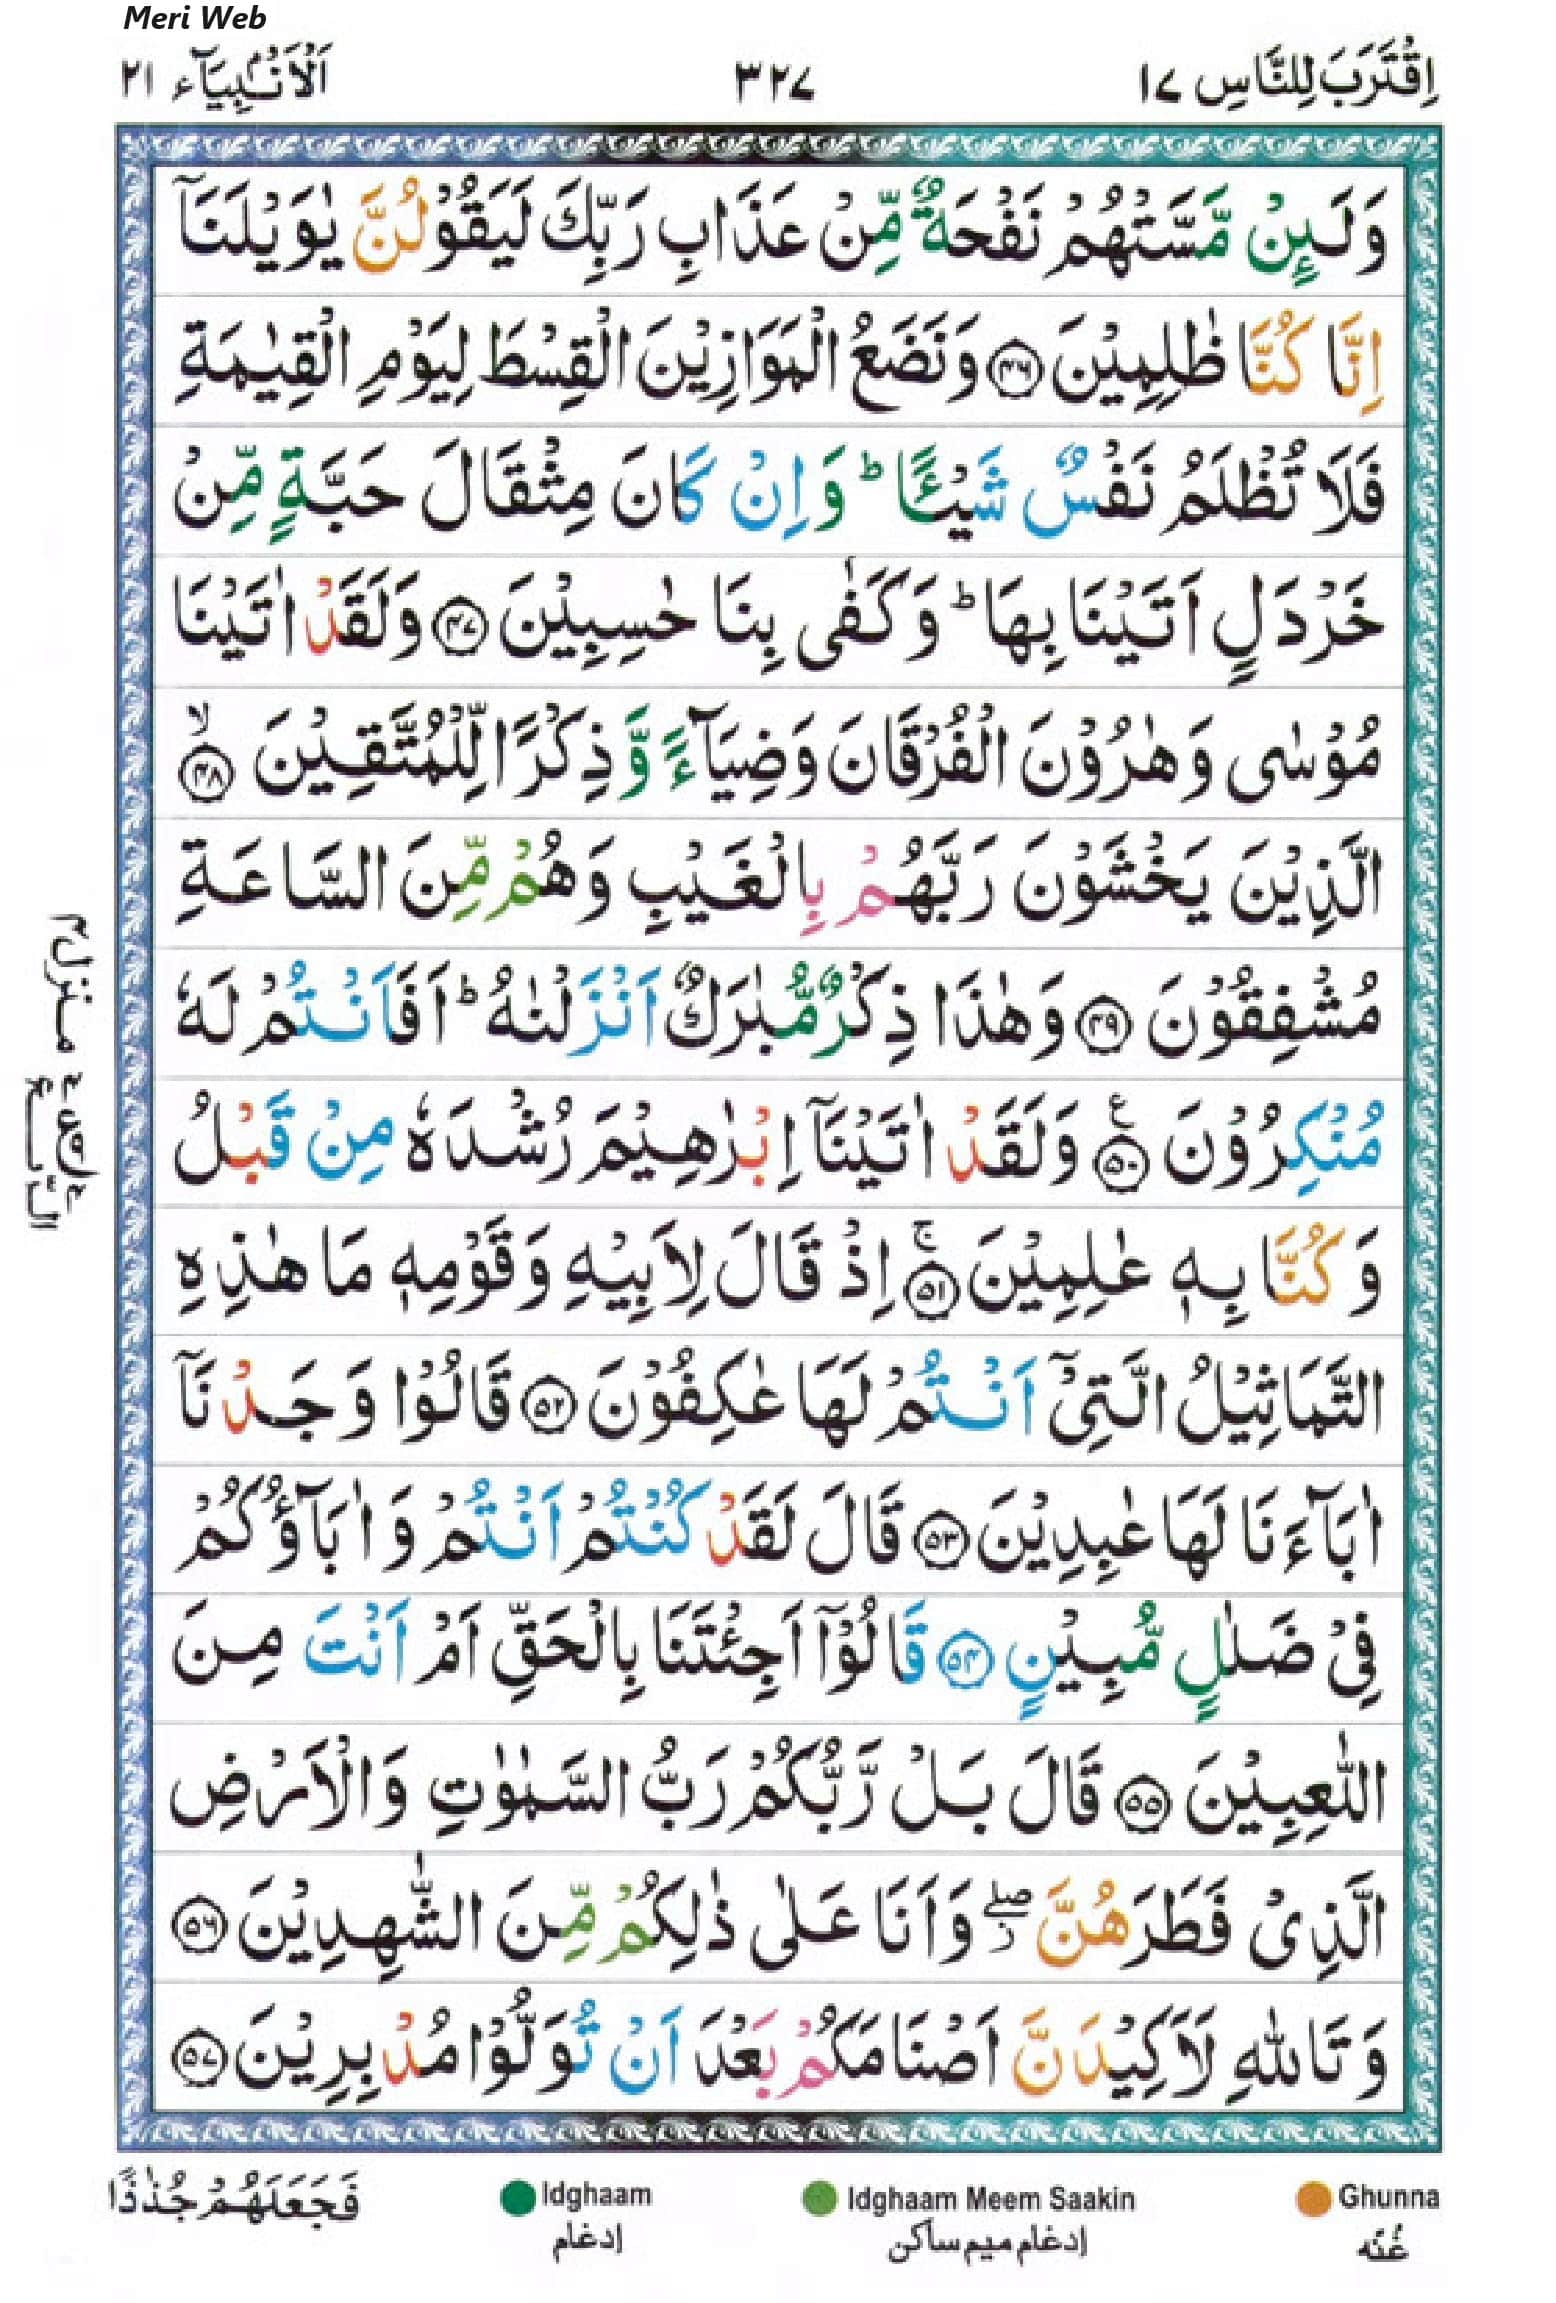 Meri Web
اِقْتَرَبَ لِلنَّاسِ ١٧
٣٢٧
اَلْاَنْۢبِيَآء ٢١
وَلَىِٕنْ مَّسَّتْهُمْ نَفْحَةٌ مِّنْ عَذَابِ رَبِّكَ لَيَقُوْلُنَّ يٰوَيْلَنَاۤ
اِنَّا كُنَّا ظٰلِمِيْنَ ۝٤٦ وَنَضَعُ الْمَوَازِيْنَ الْقِسْطَ لِيَوْمِ الْقِيٰمَةِ
فَلَا تُظْلَمُ نَفْسٌ شَيْـًٔا ؕ وَاِنْ كَانَ مِثْقَالَ حَبَّةٍ مِّنْ
خَرْدَلٍ اَتَيْنَا بِهَا ؕ وَكَفٰى بِنَا حٰسِبِيْنَ ۝٤٧ وَلَقَدْ اٰتَيْنَا
مُوْسٰى وَهٰرُوْنَ الْفُرْقَانَ وَضِيَآءً وَّذِكْرًا لِّلْمُتَّقِيْنَ ۝٤٨ۙ
الَّذِيْنَ يَخْشَوْنَ رَبَّهُمْ بِالْغَيْبِ وَهُمْ مِّنَ السَّاعَةِ
مُشْفِقُوْنَ ۝٤٩ وَهٰذَا ذِكْرٌ مُّبٰرَكٌ اَنْزَلْنٰهُ ؕ اَفَاَنْتُمْ لَهٗ
مُنْكِرُوْنَ ۝٥٠ع وَلَقَدْ اٰتَيْنَاۤ اِبْرٰهِيْمَ رُشْدَهٗ مِنْ قَبْلُ
وَكُنَّا بِهٖ عٰلِمِيْنَ ۝٥١ۚ اِذْ قَالَ لِاَبِيْهِ وَقَوْمِهٖ مَا هٰذِهِ
التَّمَاثِيْلُ الَّتِيْۤ اَنْتُمْ لَهَا عٰكِفُوْنَ ۝٥٢ قَالُوْا وَجَدْنَاۤ
اٰبَآءَنَا لَهَا عٰبِدِيْنَ ۝٥٣ قَالَ لَقَدْ كُنْتُمْ اَنْتُمْ وَاٰبَآؤُكُمْ
فِيْ ضَلٰلٍ مُّبِيْنٍ ۝٥٤ قَالُوْۤا اَجِئْتَنَا بِالْحَقِّ اَمْ اَنْتَ مِنَ
اللّٰعِبِيْنَ ۝٥٥ قَالَ بَلْ رَّبُّكُمْ رَبُّ السَّمٰوٰتِ وَالْاَرْضِ
الَّذِيْ فَطَرَهُنَّ ۖ وَاَنَا عَلٰى ذٰلِكُمْ مِّنَ الشّٰهِدِيْنَ ۝٥٦
وَتَاللّٰهِ لَاَكِيْدَنَّ اَصْنَامَكُمْ بَعْدَ اَنْ تُوَلُّوْا مُدْبِرِيْنَ ۝٥٧
فَجَعَلَهُمْ جُذٰذًا
Idghaam
إدغام
Idghaam Meem Saakin
إدغام ميم ساكن
Ghunna
غُنّه
منزل ٤